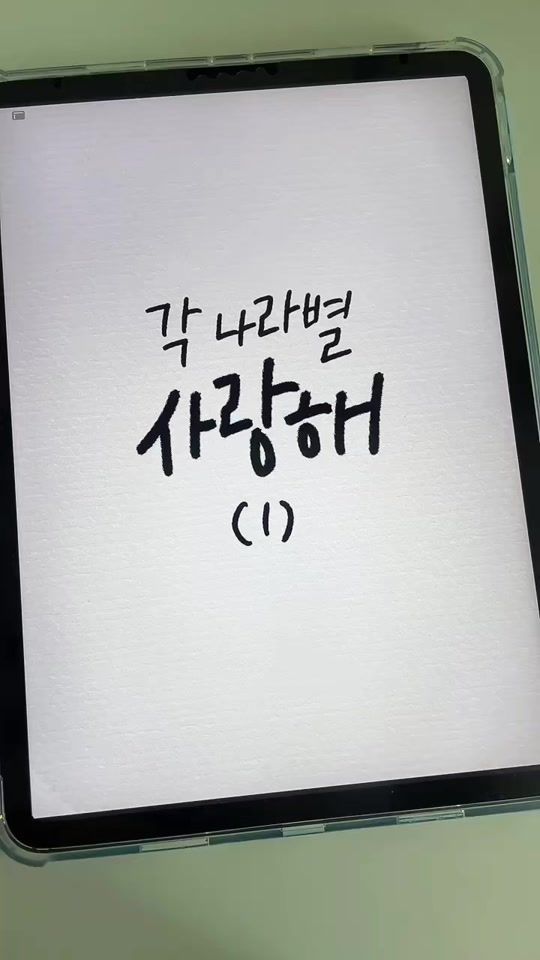 각 나라별
사랑해
(1)